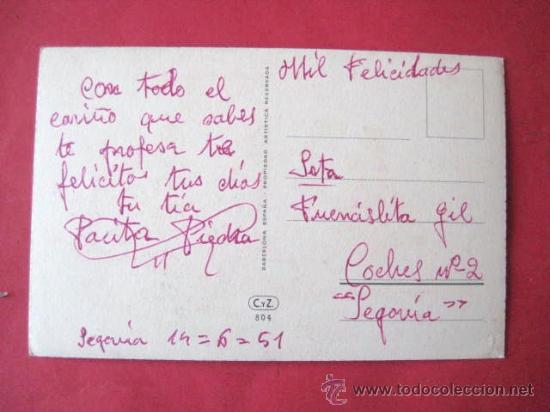 Con todo el
cariño que sabes
te profesa te
felicita tus días
tu tía
Paita Piedra
Segovia 14=6=51
BARCELONA ESPAÑA - PROPIEDAD ARTISTICA RESERVADA
C.yZ.
804
Mil Felicidades
Srta
Fuencislita Gil
Coches nº 2
"Segovia"
www.todocoleccion.net